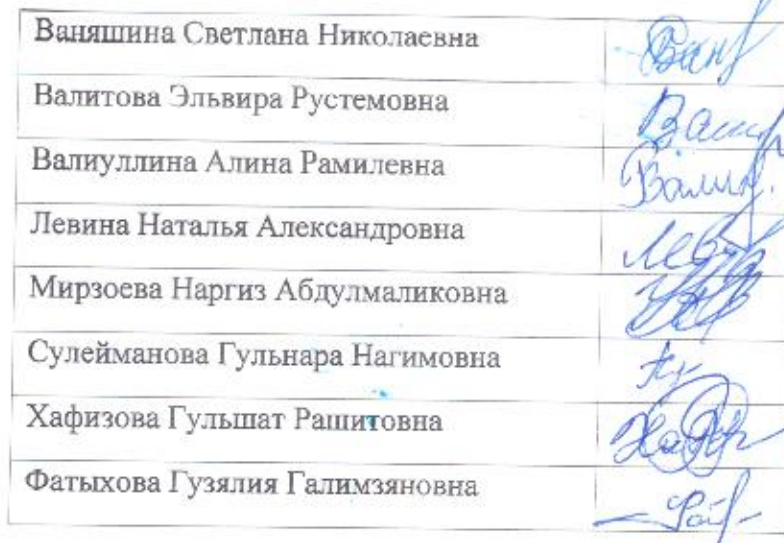 Ваняшина Светлана Николаевна
Валитова Эльвира Рустемовна
Валиуллина Алина Рамилевна
Левина Наталья Александровна
Мирзоева Наргиз Абдулмаликовна
Сулейманова Гульнара Нагимовна
Хафизова Гульшат Рашитовна
Фатыхова Гузялия Галимзяновна